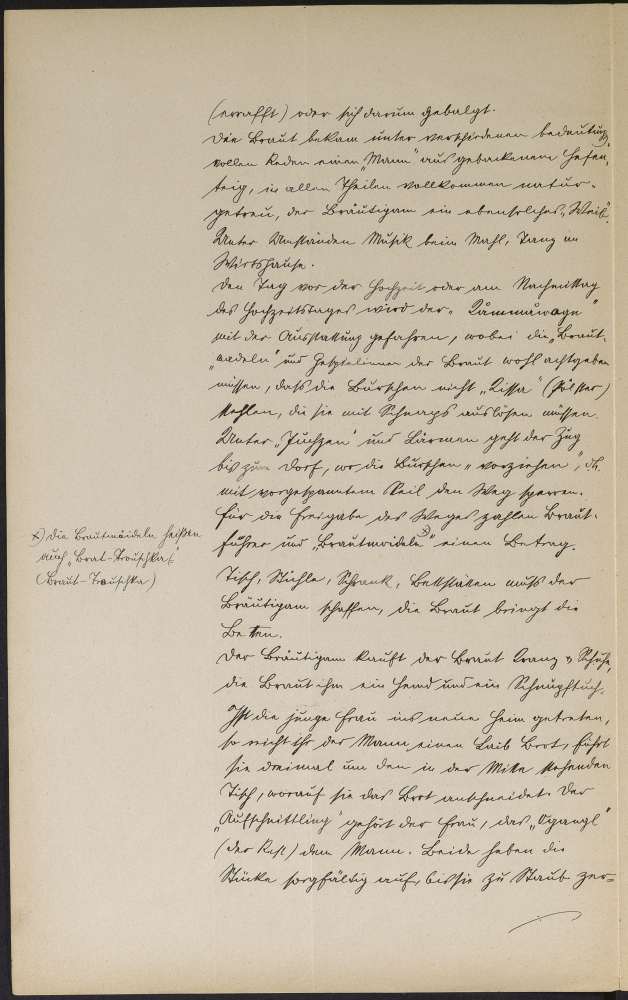 (errafft) oder sich darum gebalgt.
Die Braut bekam unter verschiedenen bedeutungs-
vollen Reden einen „Mann“ aus gebackenem Hefen-
teig, in allen Theilen vollkommen natur-
getreu, der Bräutigam ein ebensolches „Weib“.
Unter Umständen Musik beim Mahl, Tanz im
Wirtshause.
Den Tag vor der Hochzeit oder am Nachmittag
des Hochzeitstages wird der „Kåmmåwogn“
mit der Ausstattung gefahren, wobei die „Braut-
madeln“ und Gespielinnen der Braut wohl achtgeben
müssen, daß die Burschen nicht „Kissa“ (Pölster)
stehlen, die sie mit Schnaps auslösen müssen.
Unter „Juchzen“ und Lärmen geht der Zug
bis zum Dorf, wo die Burschen „vorziehen“, d.h.
mit vorgespanntem Seil den Weg sperren.
Für die Freigabe des Weges zahlen Braut-
führer und „Brautmoideln“ x) einen Betrag.
x) Die Brautmoideln heißen
auch „Brat-Troischkas“
(Braut-Troischka)
Tisch, Stühle, Schrank, Bettstätten muß der
Bräutigam schaffen, die Braut bringt die
Betten.
Der Bräutigam kauft der Braut Kranz u Schuhe,
die Braut ihm ein Hemd und ein Schnupftuch.
Ist die junge Frau ins neue Heim getreten,
so reicht ihr der Mann einen Laib Brot, führt
sie dreimal um den in der Mitte stehenden
Tisch, worauf sie das Brot anschneidet. Der
„Aufschnittling“ gehört der Frau, das
(der Rest) dem Mann. Beide heben die
Stücke sorgfältig auf, bis sie zu Staub zer-